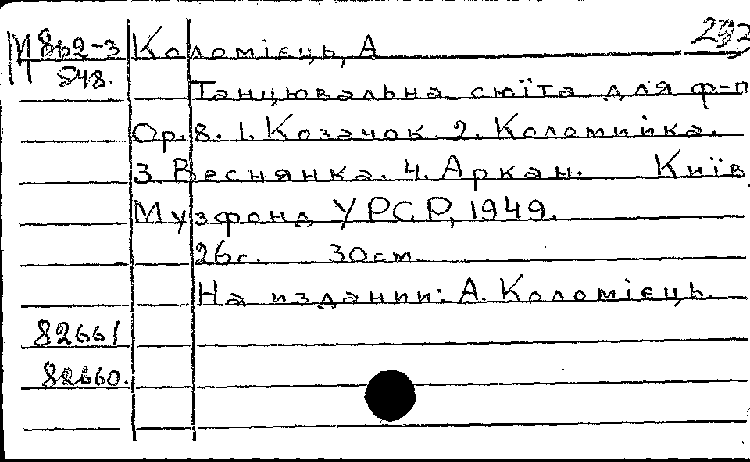 М 862-3 Коломієць, А 292
848.
Танцювальна сюїта для ф-п
Ор.8. 1. Козачок. 2. Коломийка.
3. Веснянка. 4. Аркан. Київ,
Музфонд УРСР, 1949.
26с. 30см.
На издании: А. Коломієць.
82661
82660.